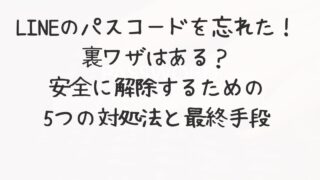 LINEのパスコードを忘れた！
裏ワザはある？
安全に解除するための
5つの対処法と最終手段